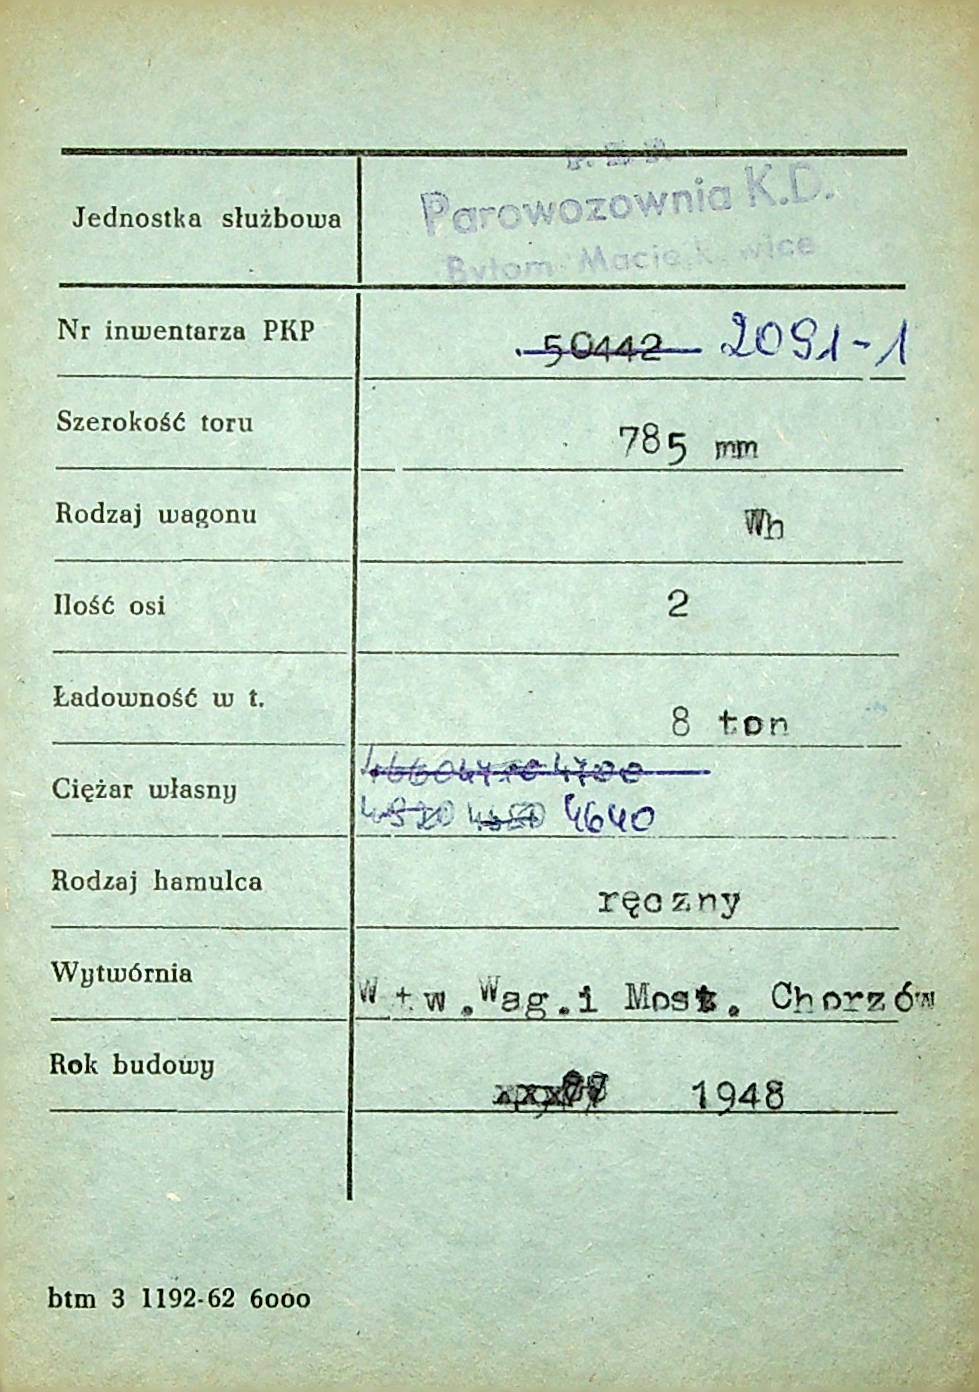 P. K. P.
Jednostka służbowa Parowozownia K.D.
Bytom Maciejkowice
Nr inwentarza PKP 50442 2091-1
Szerokość toru 785 mm
Rodzaj wagonu Wh
Ilość osi 2
Ładowność w t. 8 ton
4660 4700
Ciężar własny 4640
Rodzaj hamulca ręczny
Wytwórnia W tw.Wag.i Most. Chorzów
Rok budowy 1948
btm 3 1192-62 6000